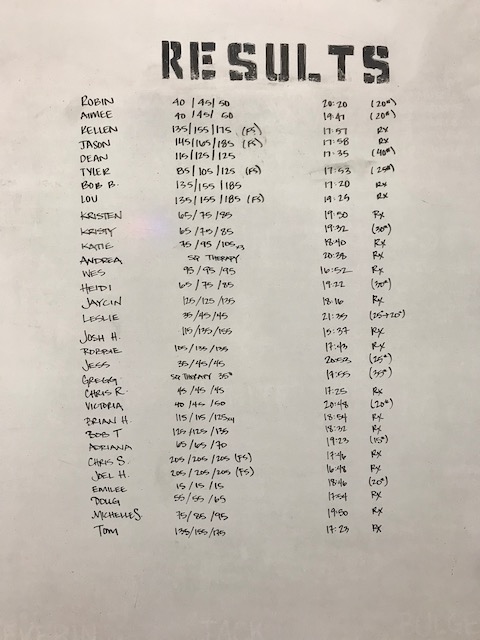 RESULTS
ROBIN 40/45/50 20:20 (20#)
AIMEE 40/45/60 19:47 (20#)
KELLEN 135/155/175 (FS) 17:57 RX
JASON 145/165/185 (FS) 17:58 RX
DEAN 115/125/125 17:35 (40#)
TYLER 85/105/125 (FS) 17:53 (25#)
BOB B. 135/155/185 17:20 RX
LOU 135/155/185 (FS) 19:25 RX
KRISTEN 65/75/85 19:50 RX
KRISTY 65/75/85 19:32 (30#)
KATIE 75/95/105x3 18:40 RX
ANDREA SQ THERAPY 20:38 RX
WES 95/95/95 16:52 RX
HEIDI 65/75/85 19:22 (30#)
JAYCIN 125/125/135 18:16 RX
LESLIE 35/45/45 21:35 (25→20#)
JOSH H. 115/135/155 15:37 RX
ROBBIE 105/135/135 17:43 RX
JESS 35/45/45 20:53 (25#)
GREGG SQ THERAPY 35# 17:55 (35#)
CHRIS R. 45/45/45 17:25 RX
VICTORIA 40/45/50 20:48 (20#)
BRIAN H. 115/115/125x4 18:54 RX
BOB T 125/125/135 18:32 RX
ADRIANA 65/65/70 19:23 (15#)
CHRIS S. 205/205/205 (FS) 17:46 RX
JOEL H. 205/205/205 (FS) 16:48 RX
EMILEE 15/15/15 18:46 (20#)
DOUG 55/55/65 17:54 RX
MICHELLE S. 75/85/95 19:50 RX
TOM 135/155/175 17:23 RX